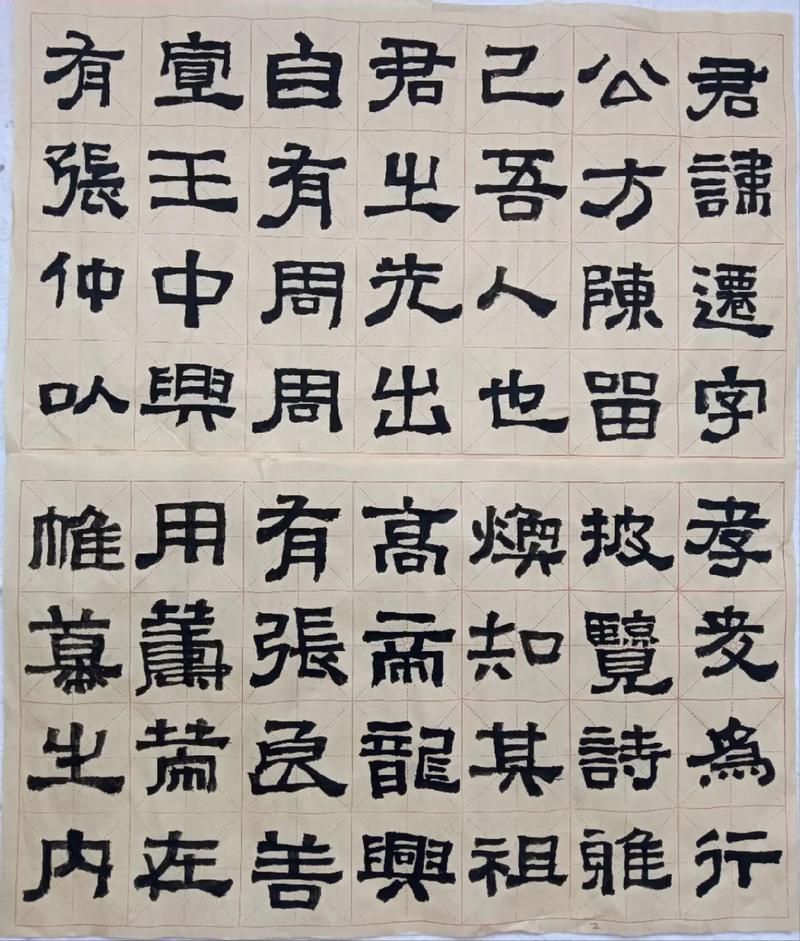 君諱遷字
公方陳留
己吾人也
君之先出
自有周周
宣王中興
有張仲以
孝友為行
披覽詩雅
煥知其祖
高帝龍興
有張良善
用籌策在
帷幕之內
2